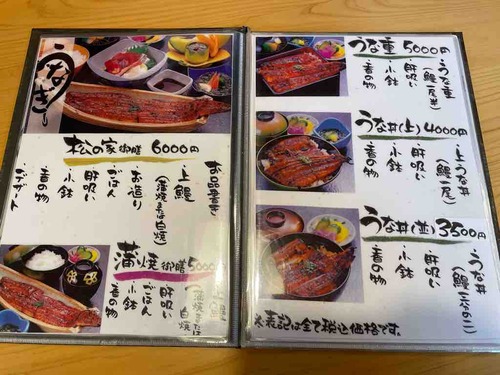 うなぎ
松の家御膳 6000円
お品書き
上鰻
(蒲焼または白焼)
・お造り
・ごはん
・肝吸い
・小鉢
・香の物
・デザート
蒲焼御膳 5000円
上鰻
(蒲焼または白焼)
・ごはん
・肝吸い
・小鉢
・香の物
うな重 5000円
・うな重
(鰻一尾半)
・肝吸い
・小鉢
・香の物
うな丼(上) 4000円
・上うな丼
(鰻一尾)
・肝吸い
・小鉢
・香の物
うな丼(並) 3500円
・うな丼
(鰻三分の二)
・肝吸い
・小鉢
・香の物
※表記は全て税込価格です。